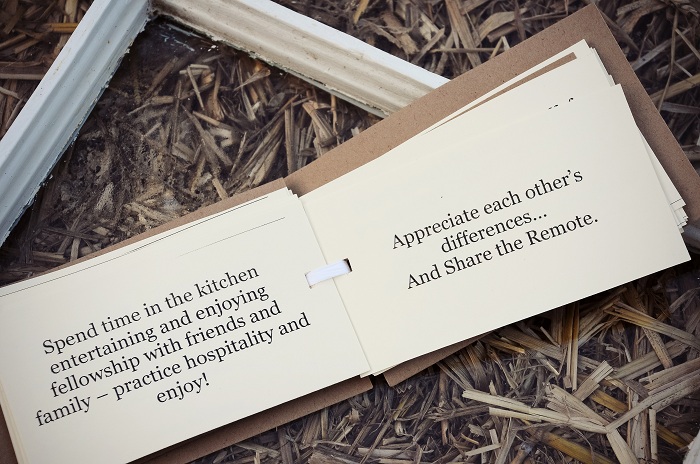 Spend time in the kitchen
entertaining and enjoying
fellowship with friends and
family – practice hospitality and
enjoy!
Appreciate each other's
differences...
And Share the Remote.